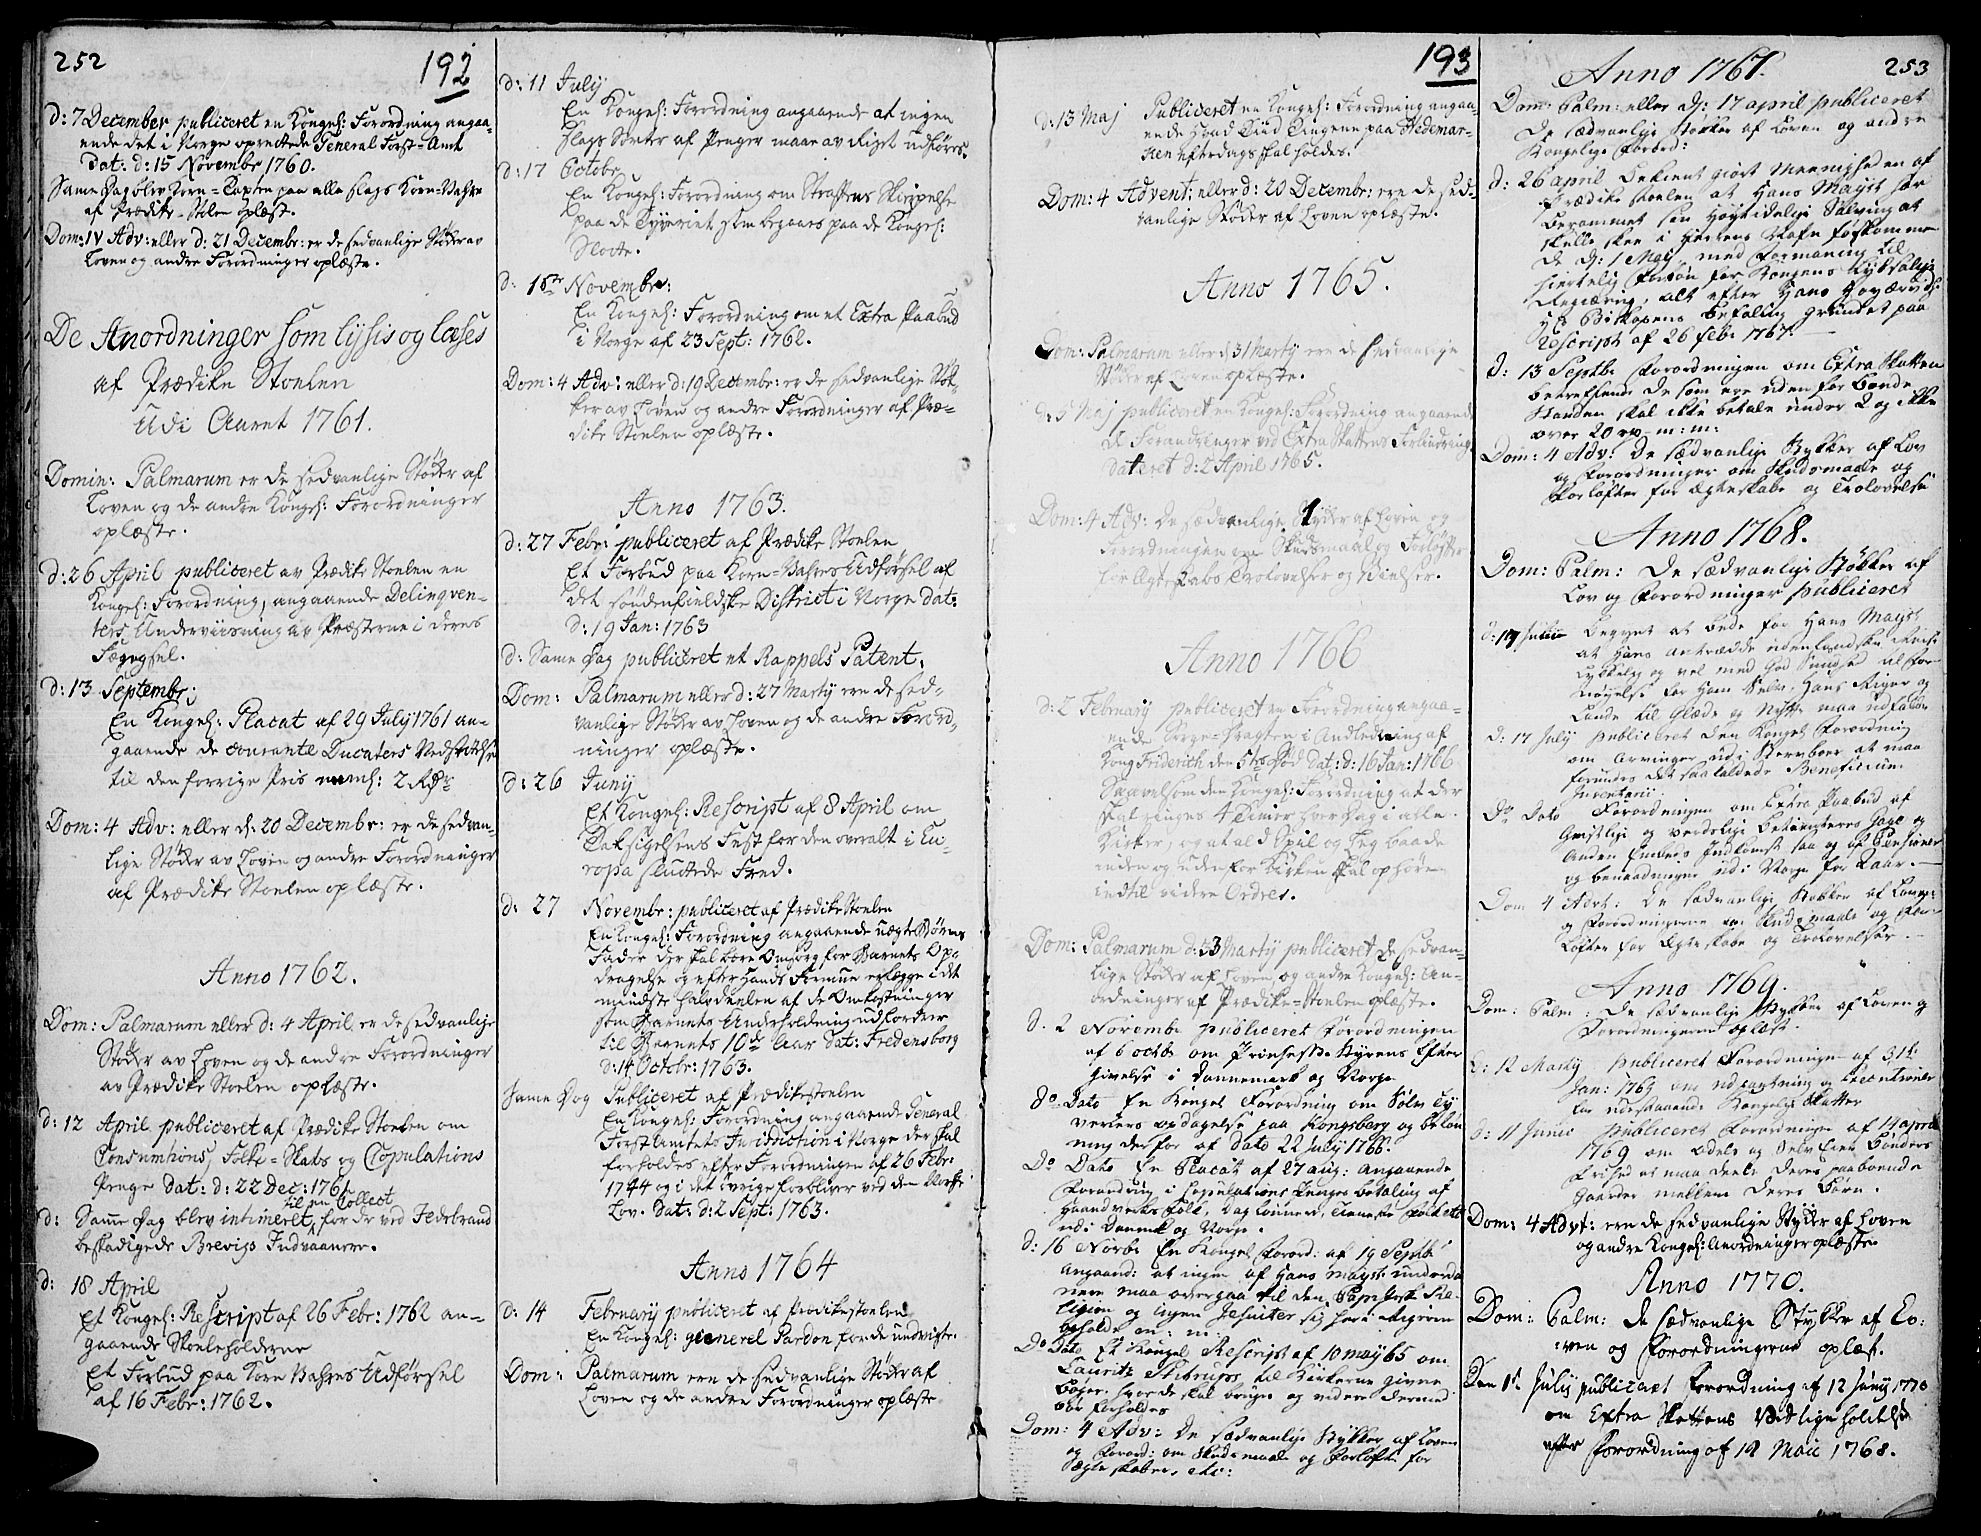 252
192
d: 7 December publiceret en Kongel: Forordning angaa-
ende det i Norge oprettede General Forst-Amt
Dat: d: 15 Novembr 1760.
Same Dag blev Korn-Taxten paa alle slags Korn-Vahre
af Prædike-Stolen oplæst.
Dom: IV Adv: eller d: 21 Decembr: er de sedvanlige Støder av
Loven og andre Forordninger oplæste.
De Anordninger som lysis og læses
af Prædike Stoelen
Udi Aaret 1761.
Domin: Palmarum er de sedvanlige Støder af
Loven og de andre Kongel: Forordninger
oplæste.
d: 26 April publiceret av Prædike Stoelen en
Kongel: Forordning, angaaende Delinqven-
ters Underviisning av Præsterne i deres
Fægngsel.
d: 13 Septembr:
En Kongel: Placat af 29 July 1761 an-
gaaende de courante Ducaters Nedsettelse
til den forrige Pris neml: 2 Rdr
Dom: 4 Adv: eller d: 20 Decembr: er de sedvan-
lige Støder av Loven og andre Forordninger
af Prædike Stoelen oplæste.
Anno 1762.
Dom: Palmarum eller d: 4 April er de sedvanlige
Støder av Loven og de andre Forordninger
av Prædike Stoelen oplæste.
d: 12 April publiceret af Prædike Stoelen om
Consumtions, Folke-Skats og Copulations
Penge dat: d: 22 Dec: 1761
til en Collect
d: Same Dag blev intimeret, for de ved Ildebrand
beskadigede Brevigs Indvaanere.
d: 18 April
Et Kongel: Rescript af 26 Febr: 1762 an-
gaaende Skoeleholderne
Et Forbud paa Korn Vahres Udførsel
af 16 Febr: 1762.
d: 11 July
En Kongel: Forordning angaaende at ingen
slags Sorter af Penger maae av Riget udføres.
d: 17 Octobr
En Kongel: Forordning om Straffens Skierpelse
paa de Tyverier som begaaes paa de Kongel:
Slotte.
d: 18de Novembr:
En Kongel: Forordning om et Extra Paabud
i Norge af 23 Sept: 1762.
Dom: 4 Adv: eller d: 19 Decembr: er de sedvanlige Støk-
ker av Loven og andre Forordninger af Præ-
dike Stoelen oplæste.
Anno 1763.
d: 27 Febr: publiceret af Prædike Stoelen
Et Forbud paa Korn-Vahres Udførsel af
det søndenfieldske District i Norge dat:
d: 19 Jan: 1763
d: Same Dag publiceret et Rappels Patent.
Dom: Palmarum eller d: 27 Marty ere de sed-
vanlige Støder av Loven og de andre Forord-
ninger oplæste.
d: 26 Juny
Et Kongel: Rescript af 8 April om
Taksigelsens Fest for den overalt i Eu-
ropa sluttede Fred.
d: 27 Novembr: publiceret af Prædike Stoelen
En Kongel: Forordning angaaende uægte Børns
Fader der skal bære Omsorg for Barnets Op-
dragelse og efter Hands Formue erlægge i det
mindste halvdeelen af de Omkostninger
som Barnets Underholdning udfordrer
til Barnets 10de Aar dat: Fredensborg
d: 14 Octobr: 1763.
Same Dag Publiceret af Prædikestoelen
En Kongel: Forordning angaaende General
Forst Amtets Jurisdiction i Norge der skal
forholdes efter Forordningen af 26 Febr:
1744 og i det øvrige forbliver ved den Norske
Lov. Dat: d: 2 Sept: 1763.
Anno 1764
d: 14 February publiceret af Prædikestoelen
En Kongel: generel Pardon for de undvigte.
Dom: Palmarum ere de sedvanlige Støder af
Loven og de andre Forordninger oplæste.
193
d: 13 Maj Publiceret en Kongel: Forordning angaa-
ende hvad Tiid Tingene paa Hedemar-
ken efterdags skal holdes.
Dom: 4 Advent: eller d: 20 Decembr: ere de sed-
vanlige Støder af Loven oplæste.
Anno 1765.
Dom: Palmarum eller d: 31 Marty ere de sedvanlige
Støder af Loven oplæste.
d: 5 Maj publiceret en Kongel: Forordning angaaende
de Forandringer ved Extra Skattens
dateret d: 2 April 1765.
Dom: 4 Adv: De sædvanlige Stykker af Loven og
Forordningen om Skudsmaal og Forløfter
for Ægteskabs Trolovelser og Vielser.
Anno 1766
d: 2 February publiceret en Forordning angaa-
ende Sørge-Dragten i Andledning af
Kong Friderich den 5tes Død dat: d: 16 Jan: 1766
Saavelsom den Kongel: Forordning at der
skal ringes 4 Timer hver Dag i alle
Kirker, og at al Spil og Leg baade
inden og uden for Kirken skal ophøre
indtil videre Ordres.
Dom: Palmarum d: 23 Marty publiceret de sedvan-
lige Støder af Loven og andre Kongel: An-
ordninger af Prædike-Stoelen oplæste.
d. 2 Novembr publiceret Forordningen
af 6 octbr om Prinsesse Styrens Efter
givelse i Dannemark og Norge
do Dato En Kongel Forordning om Sølv Ty
veriers opdagelse paa Kongsberg og beløn
ning derfor af dato 22 July 1766.
Do Dato En Placat af 27 aug: Angaaende
Forordning i Copulations Penges betaling af
Haandverks folk, Daglønnere, tieneste
udi Danmk og Norge.
d: 16 Norbr En Kongel Forord: af 19 Septbr
Angaaend: at ingen af Hans Mayst: underda
nere maa overgaa til den Papistiske Re-
ligion og ingen Jesuiter sig her i Rigerne
opholde m: m:
Do Dato Et Kongel Rescript af 10 may 65 om
Lauritz til Kirkerne givne
bøger, hvor de skal bruges og videre dermed
bør forholdes
Dom: 4 Adv: De sædvanlige Stykker af Loven
og Forord: om Skudsmaale og Forløfte for
Ægteskaber, etc:
253
Anno 1767.
Dom: Palm: eller d: 17 april publiceret
De sædvanlige Støkker af Loven og andre
Kongelige Forord:
d: 26 april Bekient giort Meenigheden af
Prædike stoelen at Hans Mayst har
berammet sin Høytidelige Salving at
skulle skee i Herrens Nafn førstkomme
de d: 1 May, med Formaning til
hiertelig Forbøn for Kongens Lyksalige
Regiæring, alt efter Hans Høyærvd:
H: Biskopens befaling grundet paa
Rescript af 26 febr 1767.
d: 13 Septbr Forordningen om Extra Skatten
betreffende De som ere uden for Bonde
Standen skal ikke betale under 2 og ikke
over 20 rd m: m:
Dom: 4 Adv: De sædvanlige Stykker af Lov
og Forordninger om Skudsmaale og
Forløfter for Ægteskabe og Trolovelse
Anno 1768.
Dom: Palm: De sædvanlige Støkker af
Lov og Forordninger publiceret
d: 19 Junii Begynt at bede for Hans Mayst
at Hans antrædde udenlandske Reise
lykkelig og vel med God Sundhed til For-
nøyelse for Ham Selv, Hans Riger og
Lande til Glæde og Nytte maa udfalde
d: 17 July publiceret Den Kongel Forordning
om Arvinger udi Sterboer at maa
forundes det saa kaldede Beneficium
Inventarii
Do Dato Forordningen om Extra Paabud af
Geistlige og verdslige betienteres Gage og
Anden Embeds Indkomst saa og af Pensioner
og benaadninger udi Norge for 2 aar.
Dom 4 Advt: De sædvanlige Støkker af Loven
og Forordningerne om Skudsmaale og For-
løfter for Ægteskabe og Trolovelser.
Anno 1769.
Dom: Palm: De sædvanlige Stykker af Loven og
Forordningerne oplæst.
d: 12 Marty publiceret Forordningen af 31te
Jan: 1769 om udpantning og Executioner
for udestaaende Kongelige Skatter
d: 11 Junii publiceret Forordningen af 14 april
1769 om Odels og Selv Eier Bønders
Frihed at maa deele deres paaboende
Gaarder mellem deres Børn.
Dom: 4 Advt: ere de sedvanlige Stykker af Loven
og andre Kongel: Anordninger oplæste.
Anno 1770.
Dom: Palm: De sædvanlige Stykker af Lo:
:ven og Forordningerne oplæst.
Den 1ste July publicaet Forordning af 12 Juny 1770
om Extra Skattens Vedligeholdelse
efter Forordning af 14 Maii 1768.